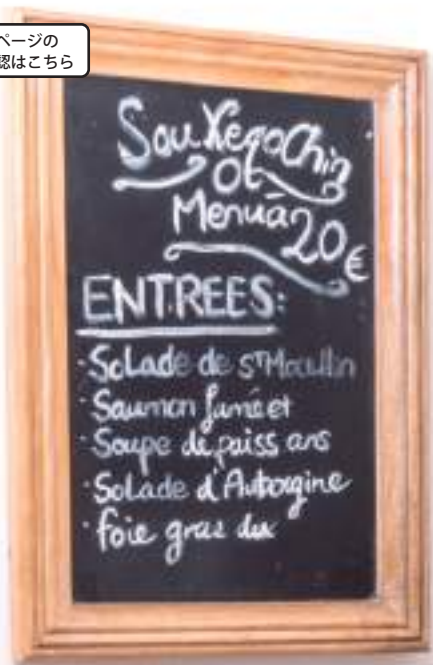 ページの
認はこちら
Sou Kego Chin
Ot
Menu à 20 €
ENTREES:
· Salade de St Moullin
· Saumon fumé et
· Soupe de poiss ons
· Solade d'Aubogine
· foie gras du